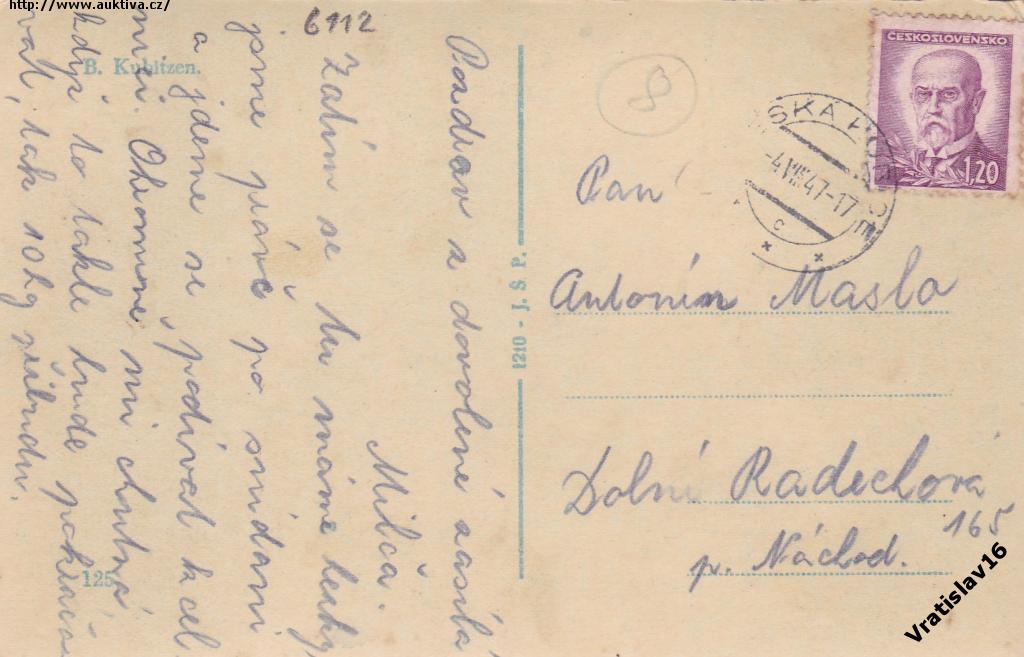 http://www.auktiva.cz/
6112
B. Kubitzen.
125
1210 - J. Š. P.
Pozdrav z dovolené zasílá
Milča.
Zatím se tu máme hezky,
jsme právě po snídani
a jdeme se podívat k cel
nici. Ohromně mi chutná
když to takle bude pokračo
vat, tak 10 kg přibudu.
8
ČESKOSLOVENSKO
1,20
SKÁ
-4.VIII.47-17
c
Pan
Antonín Masla
Dolní Radechová
165
p. Náchod.
Vratislav16